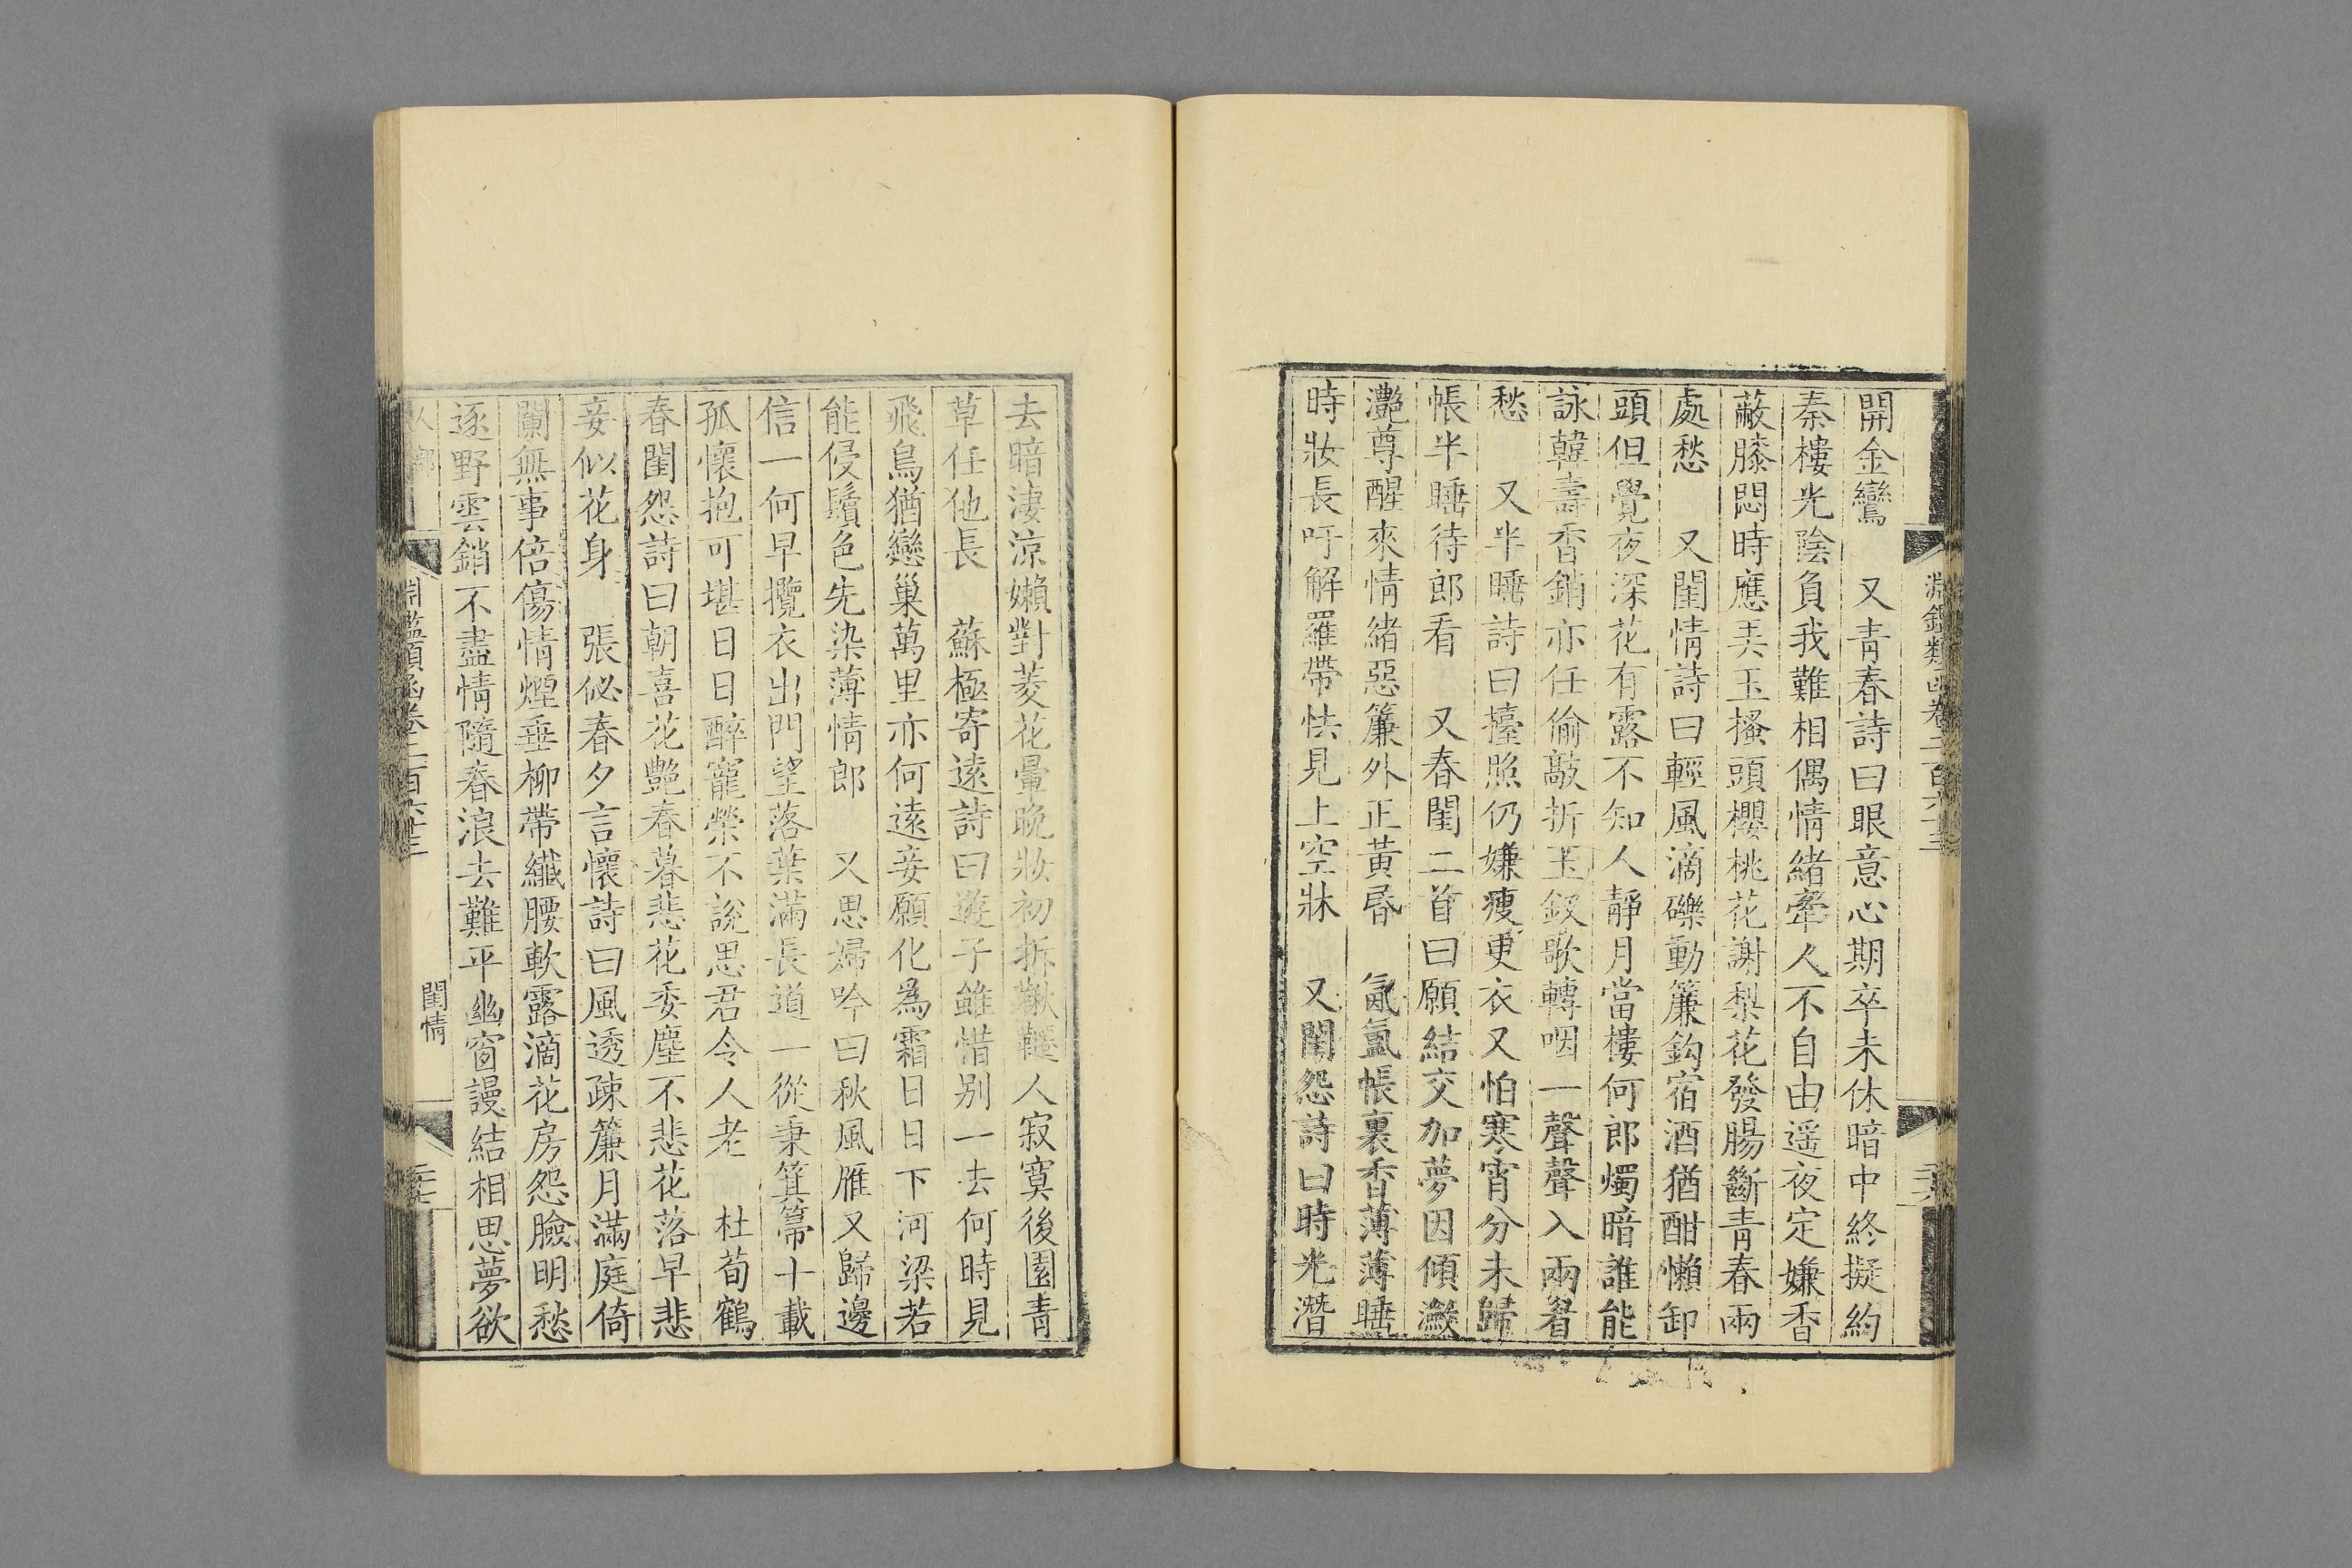 淵鑑類函卷二百六十三
開金鸞　又青春詩曰眼意心期卒未休暗中終擬約
秦樓光陰負我難相偶情緒牽人不自由遥夜定嫌香
蔽膝悶時應弄玉搔頭櫻桃花謝梨花發腸斷青春兩
處愁　又閨情詩曰輕風滴礫動簾鈎宿酒猶酣懶卸
頭但覺夜深花有露不知人靜月當樓何郎燭暗誰能
詠韓壽香銷亦任偷敲折玉釵歌轉咽一聲聲入兩眉
愁　又半睡詩曰擡照仍嫌瘦更衣又怕寒宵分未歸
帳半睡待郎看　又春閨二首曰願結交加夢因傾瀲
灔尊醒來情緒惡簾外正黃昏　氤氳帳裏香薄薄睡
時妝長吁解羅帶怯見上空牀　又閨怨詩曰時光潛
去暗淒涼嬾對菱花暈晚妝初拆鞦韆人寂寞後園青
草任他長　蘇極寄遠詩曰遊子雖惜别一去何時見
飛鳥猶戀巢萬里亦何遠妾願化為霜日日下河梁若
能侵鬢色先染薄情郎　又思婦吟曰秋風雁又歸邊
信一何早攬衣出門望落葉滿長道一從秉箕箒十載
孤懷抱可堪日日醉寵榮不說思君令人老　杜荀鶴
春閨怨詩曰朝喜花艷春暮悲花委塵不悲花落早悲
妾似花身　張佖春夕言懷詩曰風透疎簾月滿庭倚
闌無事倍傷情煙垂柳帶纖腰軟露滴花房怨臉明愁
逐野雲銷不盡情隨春浪去難平幽窗謾結相思夢欲
淵鑑類函卷二百六十三　閨情　二十七